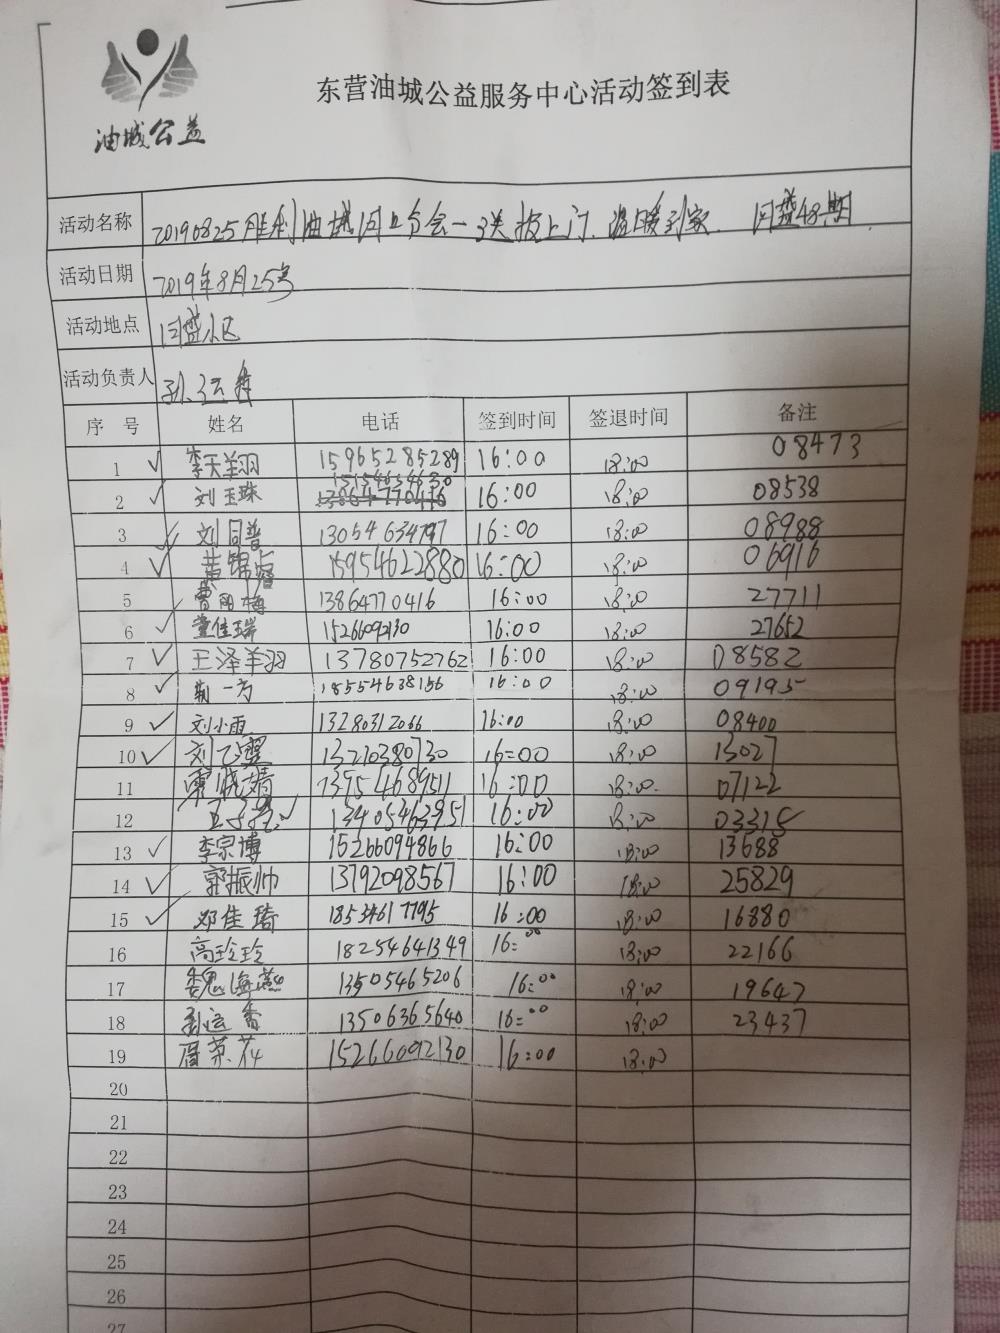 油城公益
东营油城公益服务中心活动签到表
活动名称 20190825胜利油城同卫分会一 送报上门、温暖到家. 同盛48期
活动日期 2019年8月25号
活动地点 同盛小区
活动负责人 孙运香
序 号 姓名 电话 签到时间 签退时间 备注
1 ✓ 李天羊羽 15965285289 16:00 18:00 08473
15154634630
2 ✓ 刘玉珠 13864770416 16:00 18:00 08538
3 ✓ 刘同普 13054634797 16:00 18:00 08988
4 ✓ 黄锦 15954622880 16:00 18:00 06916
5 曹阳梅 13864770416 16:00 18:00 27711
6 ✓ 董佳瑞 15266092130 16:00 18:00 27652
7 ✓ 王泽羊羽 13780752762 16:00 18:00 08582
8 ✓ 一方 18554638156 16:00 18:00 09195
9 ✓ 刘小雨 13280312066 16:00 18:00 08400
10 ✓ 刘乙 13210380730 16=00 18:00 13027
11 晓婧 13954689511 16:00 18:00. 07122
12 ✓ 13405463951 16:00 18:00 03315
13 ✓ 李宗博 15266094866 16:00 18:00 13688
14 ✓ 郭振帅 13792098567 16:00 18:00 25829
15 ✓ 邓佳琦 18534617795 16:00 18:00 16880
16 高珍玲 18254641349 16=00 18:00 22166
17 魏海燕 13505465206 16:00 18:00 19647
18 孙运香 13506365640 16=00 18:00 23437
19 周菜花 15266092130 16:00 18:00
20
21
22
23
24
25
26
27